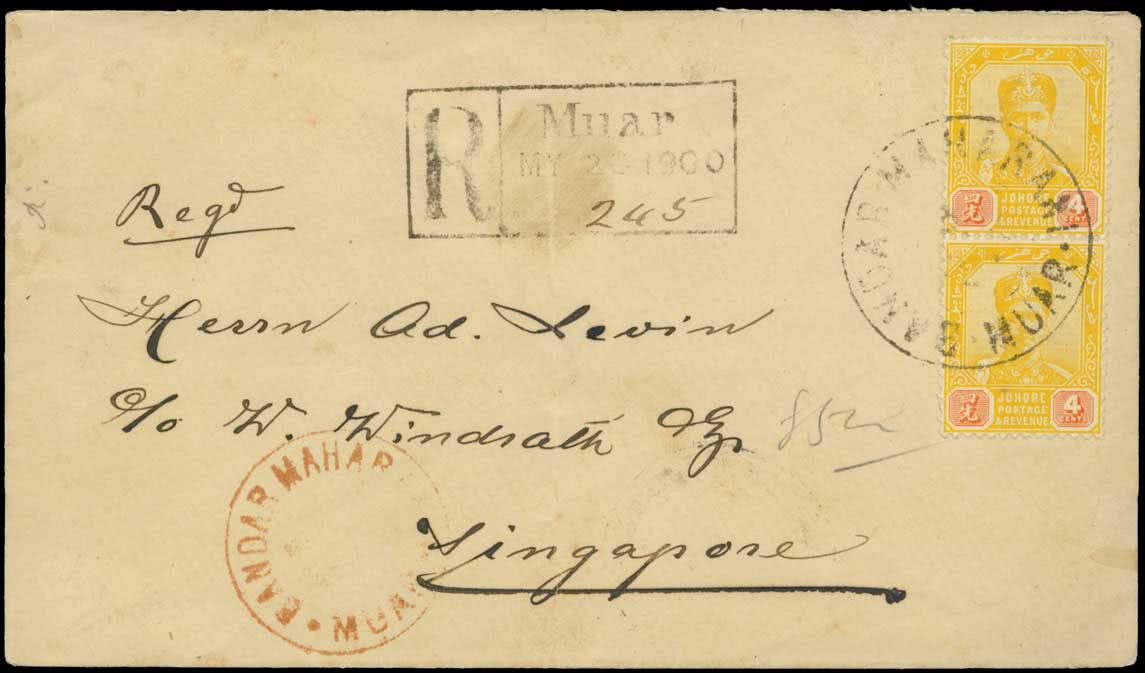 R
Muar
MY 20 1900
245
Regd
Herrn Ad. Levin
c/o W. Windrath Esqr
Singapore
BANDAR MAHARANI
MUAR
JOHORE
POSTAGE
& REVENUE
四先
4
CENTS
JOHORE
POSTAGE
& REVENUE
四先
4
CENTS
BANDAR MAHAR
MUAR